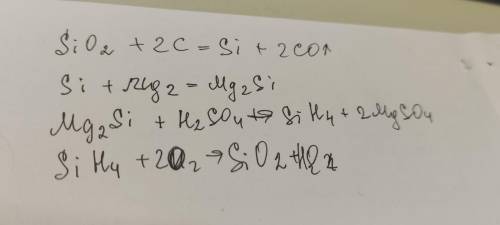 SiO₂ + 2C = Si + 2CO↑
Si + Mg₂ = Mg₂Si
Mg₂Si + H₂SO₄ → SiH₄ + 2MgSO₄
SiH₄ + 2O₂ → SiO₂ +